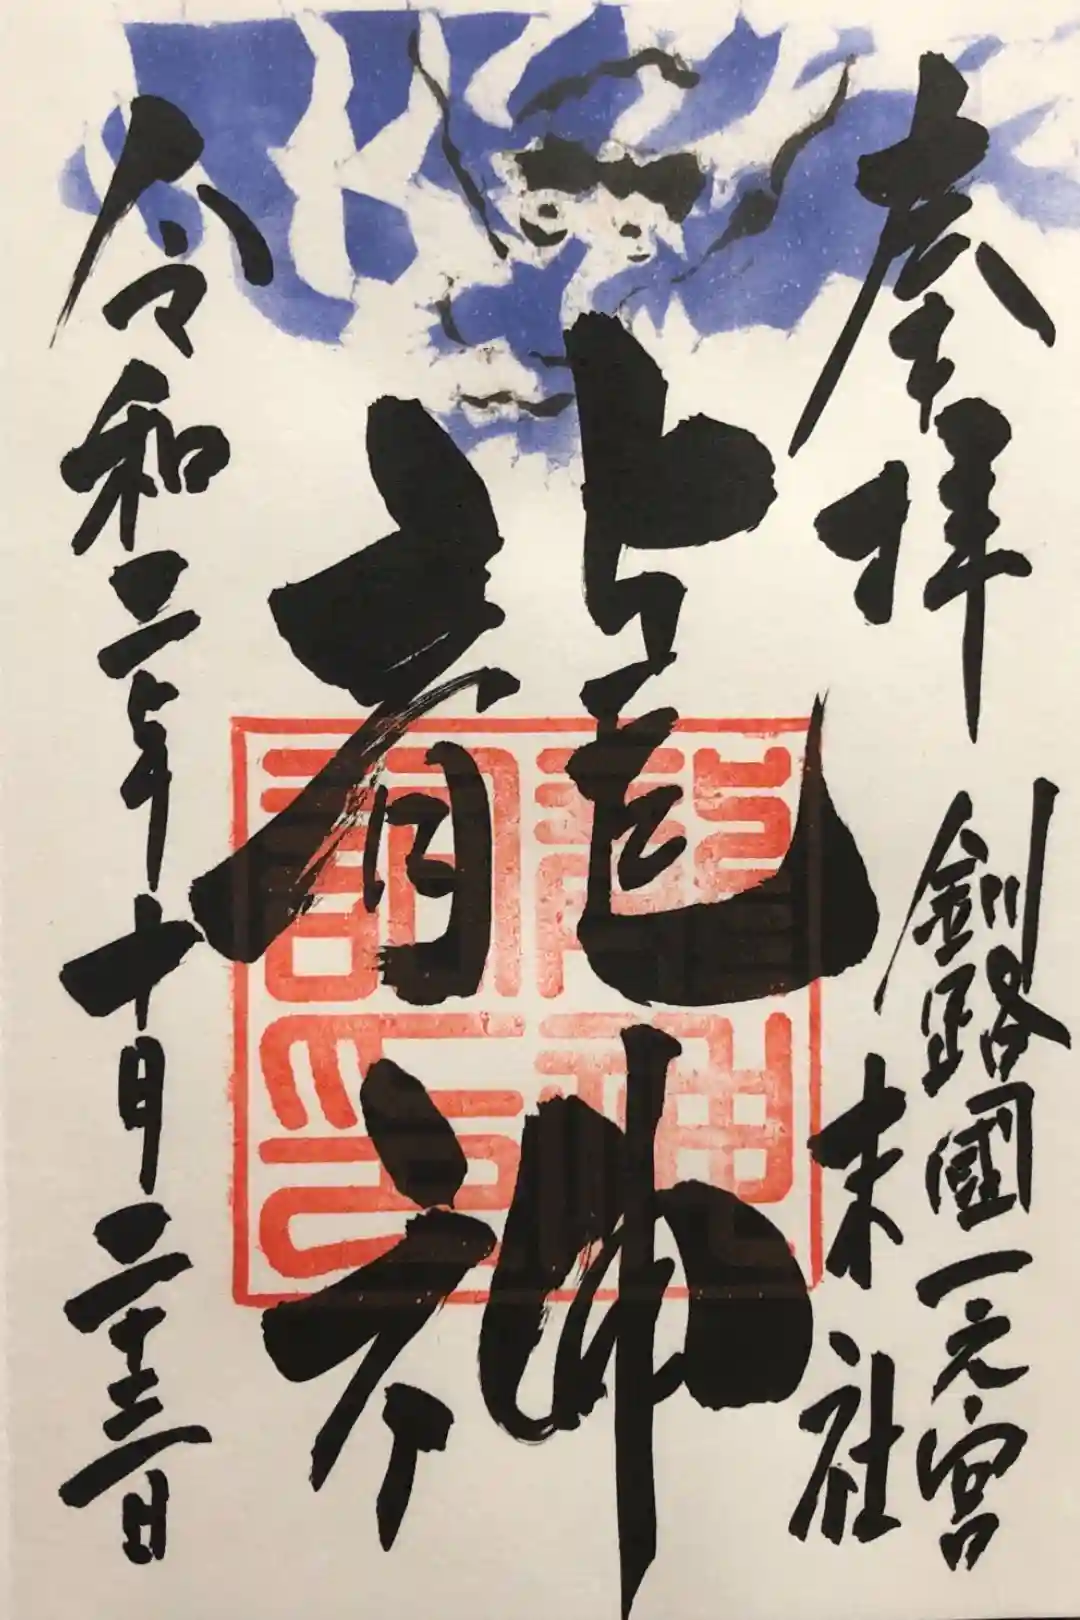 奉拝
釧路國一之宮
末社
龍神
令和二年十月二十三日